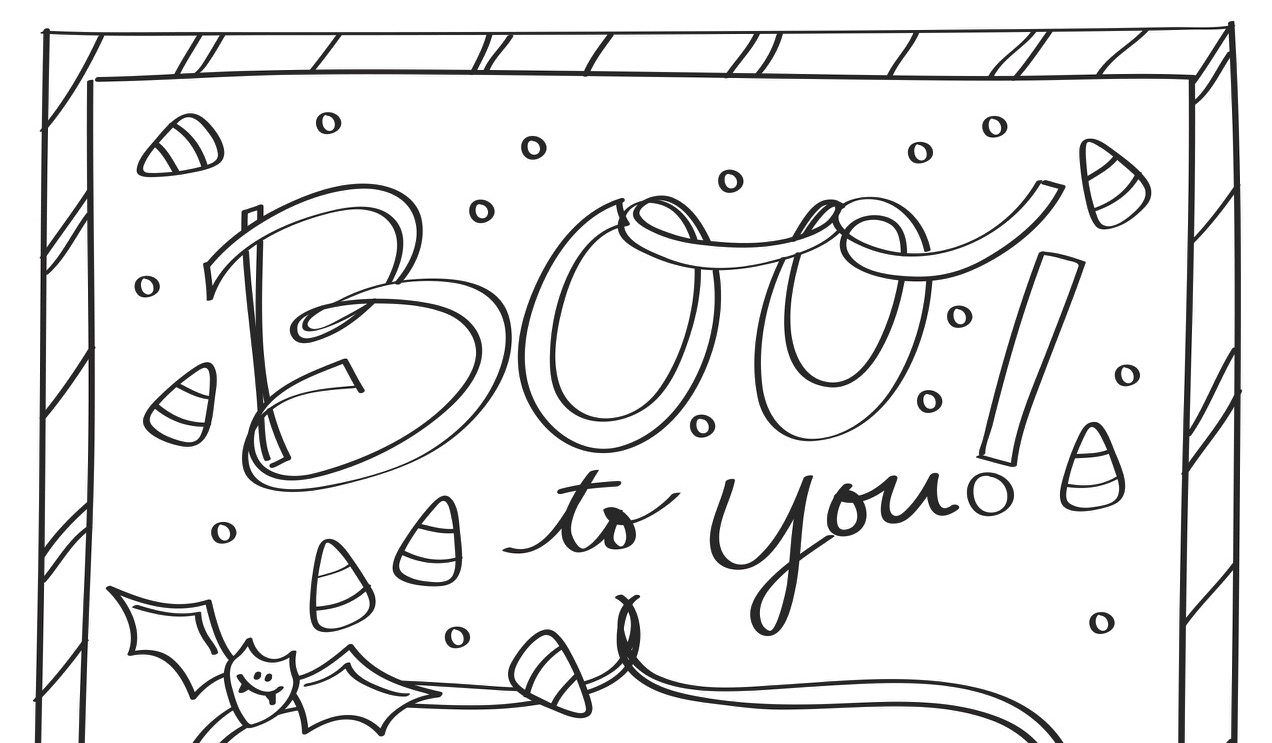 Boo!
to you